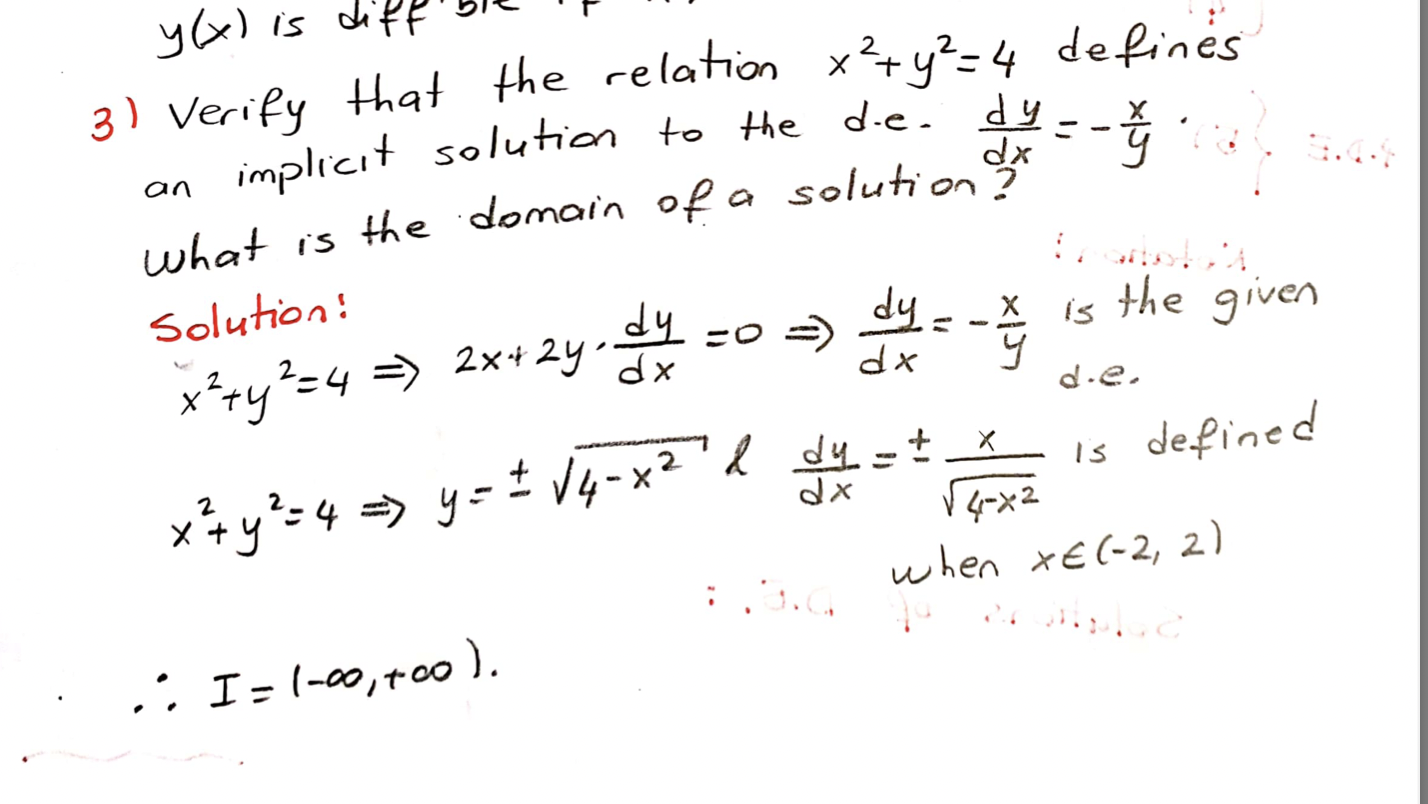 y(x) is diff'ble if
3) Verify that the relation x²+y²=4 defines
an implicit solution to the d.e. dy/dx = -x/y.
What is the domain of a solution?
Solution:
x²+y²=4 ⇒ 2x+2y·dy/dx=0 ⇒ dy/dx=-x/y is the given
d.e.
x²+y²=4 ⇒ y=±√(4-x²) & dy/dx=± x/√(4-x²) is defined
when x∈(-2, 2)
∴ I=(-∞,+∞).